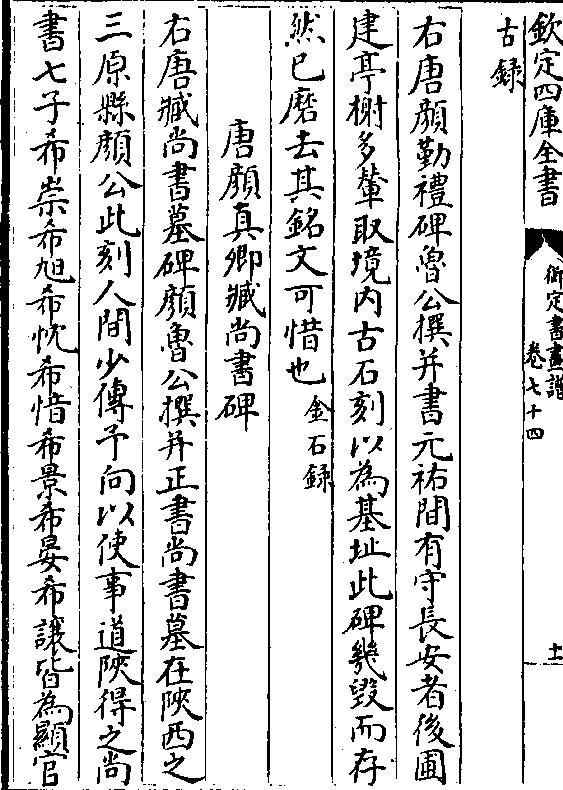 欽定四庫全書
御定書畫譜
卷七十四
十一
古録
右唐顔勤禮碑魯公撰并書元祐間有守長安者後圃
建亭榭多輦取境内古石刻以為基址此碑幾毀而存
然已磨去其銘文可惜也金石録
唐顔真卿臧尚書碑
右唐臧尚書墓碑顔魯公撰并正書尚書墓在陜西之
三原縣顔公此刻人間少傳予向以使事道陜得之尚
書七子希崇希旭希忱希愔希景希晏希讓皆為顯官